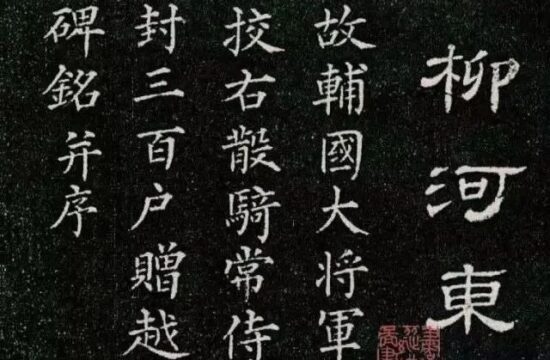 柳河東
故輔國大将軍
挍右散騎常侍
封三百户贈越
碑銘并序